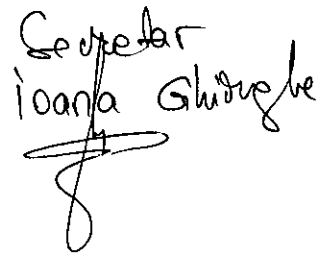 Secretar
Ioana Ghiorghe